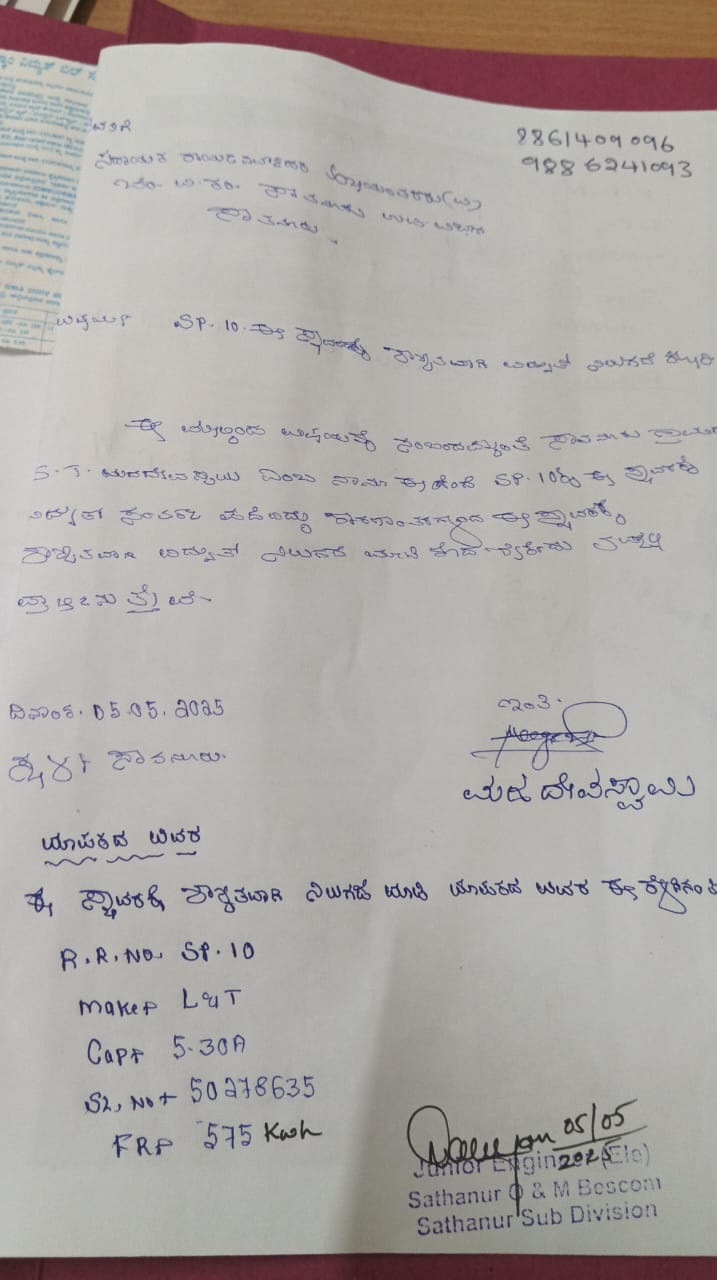 8861409096
9886241093
ಸಹಾಯಕ ಕಾರ್ಯನಿರ್ವಾಹಕ
ಸಾತನೂರು ಉಪ ವಿಭಾಗ
ಸಾತನೂರು.
ವಿಷಯ: SP.10. ಈ ಸ್ಥಾವರಕ್ಕೆ ಶಾಶ್ವತವಾಗಿ ವಿದ್ಯುತ್ ನಿಲುಗಡೆ
ಈ ಮೇಲ್ಕಂಡ ವಿಷಯಕ್ಕೆ ಸಂಬಂದಪಟ್ಟಂತೆ ಸಾತನೂರು ಗ್ರಾಮ
S.T. ಮಹದೇವಸ್ವಾಮಿ ಎಂಬ ನಾನು ಈ ಹಿಂದೆ SP.10 ಈ ಸ್ಥಾವರಕ್ಕೆ
ವಿದ್ಯುತ್ ಸಂಪರ್ಕ ಪಡೆದಿದ್ದು ಕಾರಣಾಂತರಗಳಿಂದ ಈ ಸ್ಥಾವರಕ್ಕೆ
ಶಾಶ್ವತವಾಗಿ ವಿದ್ಯುತ್ ನಿಲುಗಡೆ ಮಾಡಿ ಕೊಡಬೇಕೆಂದು ತಮ್ಮಲ್ಲಿ
ಪ್ರಾರ್ಥಿಸುತ್ತೇನೆ.
ದಿನಾಂಕ. 05.05.2025
ಇಂತಿ.
ಸ್ಥಳ: ಸಾತನೂರು.
ಮಹದೇವಸ್ವಾಮಿ
ಮಾಪಕದ ವಿವರ
ಈ ಸ್ಥಾವರಕ್ಕೆ ಶಾಶ್ವತವಾಗಿ ನಿಲುಗಡೆ ಮಾಡಿ ಮಾಪಕದ ವಿವರ ಈ
R.R.No. SP.10
Make: L&T
Cap: 5-30A
SL.No: 50278635
FR: 575 Kwh
05/05
2025
Junior Engineer (Ele)
Sathanur O & M Bescom
Sathanur Sub Division